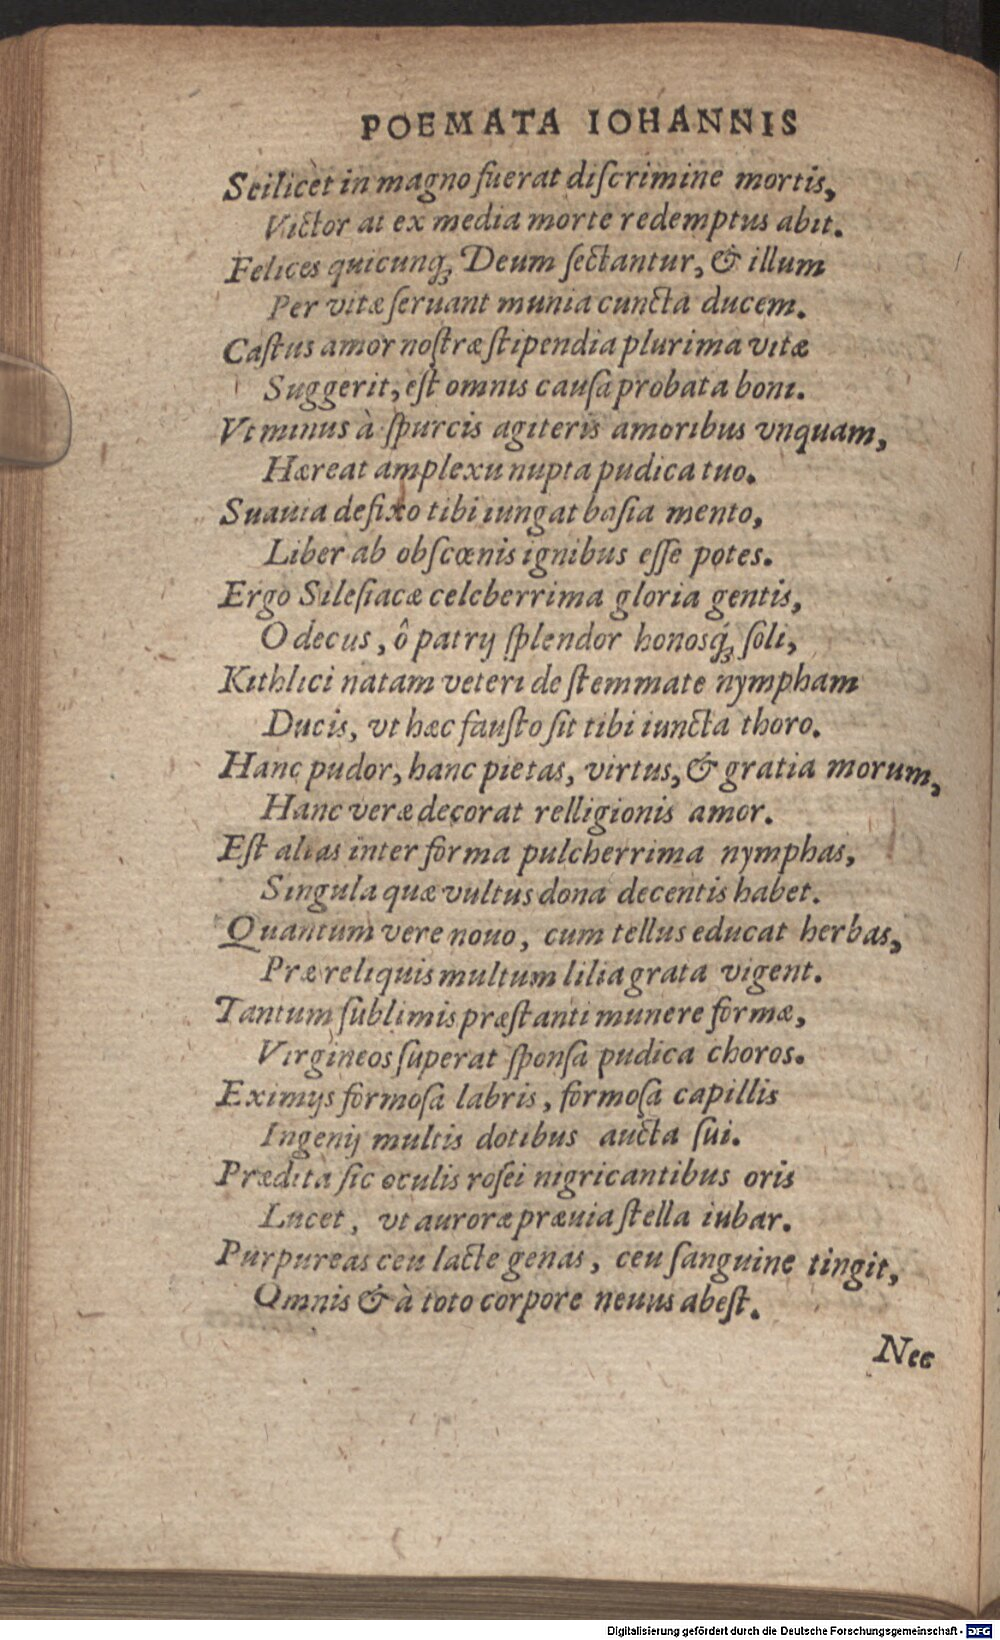 POEMATA IOHANNIS
Scilicet in magno fuerat diſcrimine mortis,
Victor at ex media morte redemptus abit.
Felices quicunq́ꝫ Deum ſectantur, & illum
Per vitæ ſeruant munia cuncta ducem.
Caſtus amor noſtræ ſtipendia plurima vitæ
Suggerit, eſt omnis cauſa probata boni.
Vt minus à ſpurcis agiteris amoribus vnquam,
Hæreat amplexu nupta pudica tuo.
Suauia defixo tibi iungat baſia mento,
Liber ab obſcœnis ignibus eſſe potes.
Ergo Sileſiacæ celeberrima gloria gentis,
O decus, ô patrij ſplendor honosq́ꝫ ſoli,
Kithlici natam veteri de ſtemmate nympham
Ducis, vt hæc fauſto ſit tibi iuncta thoro.
Hanc pudor, hanc pietas, virtus, & gratia morum,
Hanc veræ decorat relligionis amor.
Eſt alias inter forma pulcherrima nymphas,
Singula quæ vultus dona decentis habet.
Quantum vere nouo, cum tellus educat herbas,
Præ reliquis multum lilia grata vigent.
Tantum ſublimis præſtanti munere formæ,
Virgineos ſuperat ſponſa pudica choros.
Eximijs formoſa labris, formoſa capillis
Ingenij multis dotibus aucta ſui.
Prædita ſic oculis roſei nigricantibus oris
Lucet, vt auroræ præuia ſtella iubar.
Purpureas ceu lacte genas, ceu ſanguine tingit,
Omnis & à toto corpore neuus abeſt.
Nec
Digitalisierung gefördert durch die Deutsche Forschungsgemeinschaft - DFG